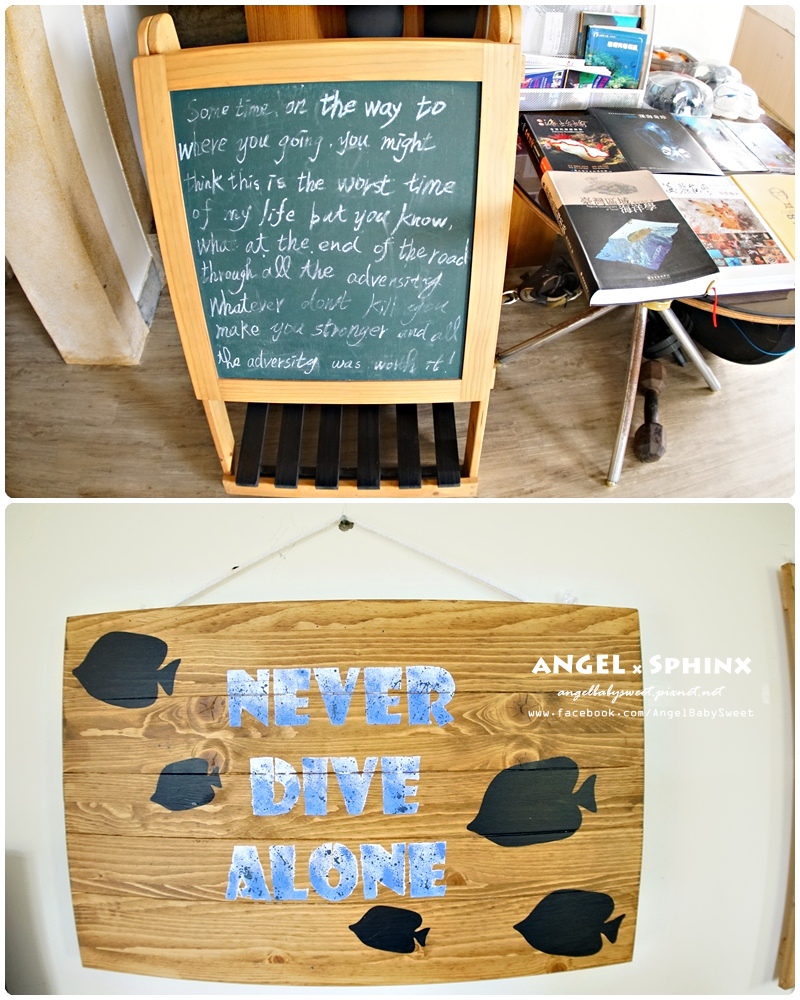 Some time, on the way to
where you going. you might
think this is the worst time
of my life but you know,
what at the end of the road
through all the adversity
Whatever don't kill you
make you stronger and all
the adversity was worth it!
NEVER
DIVE
ALONE
ANGEL x SPHINX
angelbabysweet.pixnet.net
www.facebook.com/AngelBabySweet